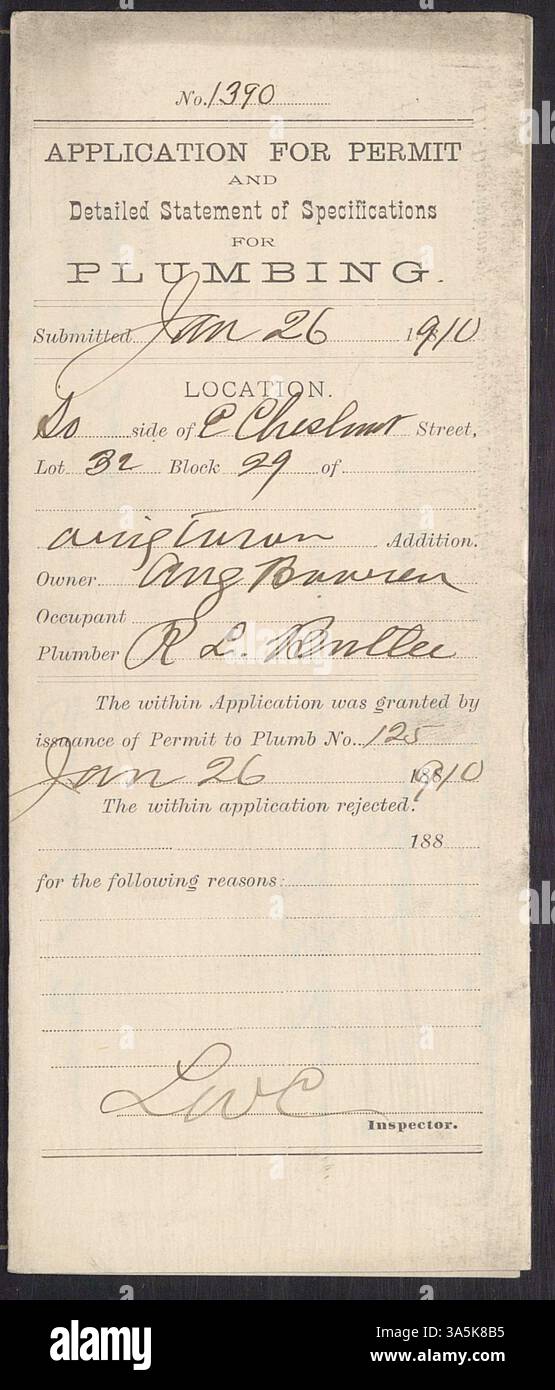 No. 1390
APPLICATION FOR PERMIT
AND
Detailed Statement of Specifications
FOR
PLUMBING.
Submitted Jan 26 1910
LOCATION.
So side of E Chestnut Street,
Lot 32 Block 29 of
Addition.
Owner Aug
Occupant
Plumber R L.
The within Application was granted by
issuance of Permit to Plumb No. 125
Jan 26 1910
The within application rejected.
188
for the following reasons:
LWC
Inspector.
alamy
Image ID: 3A5K8B5
www.alamy.com